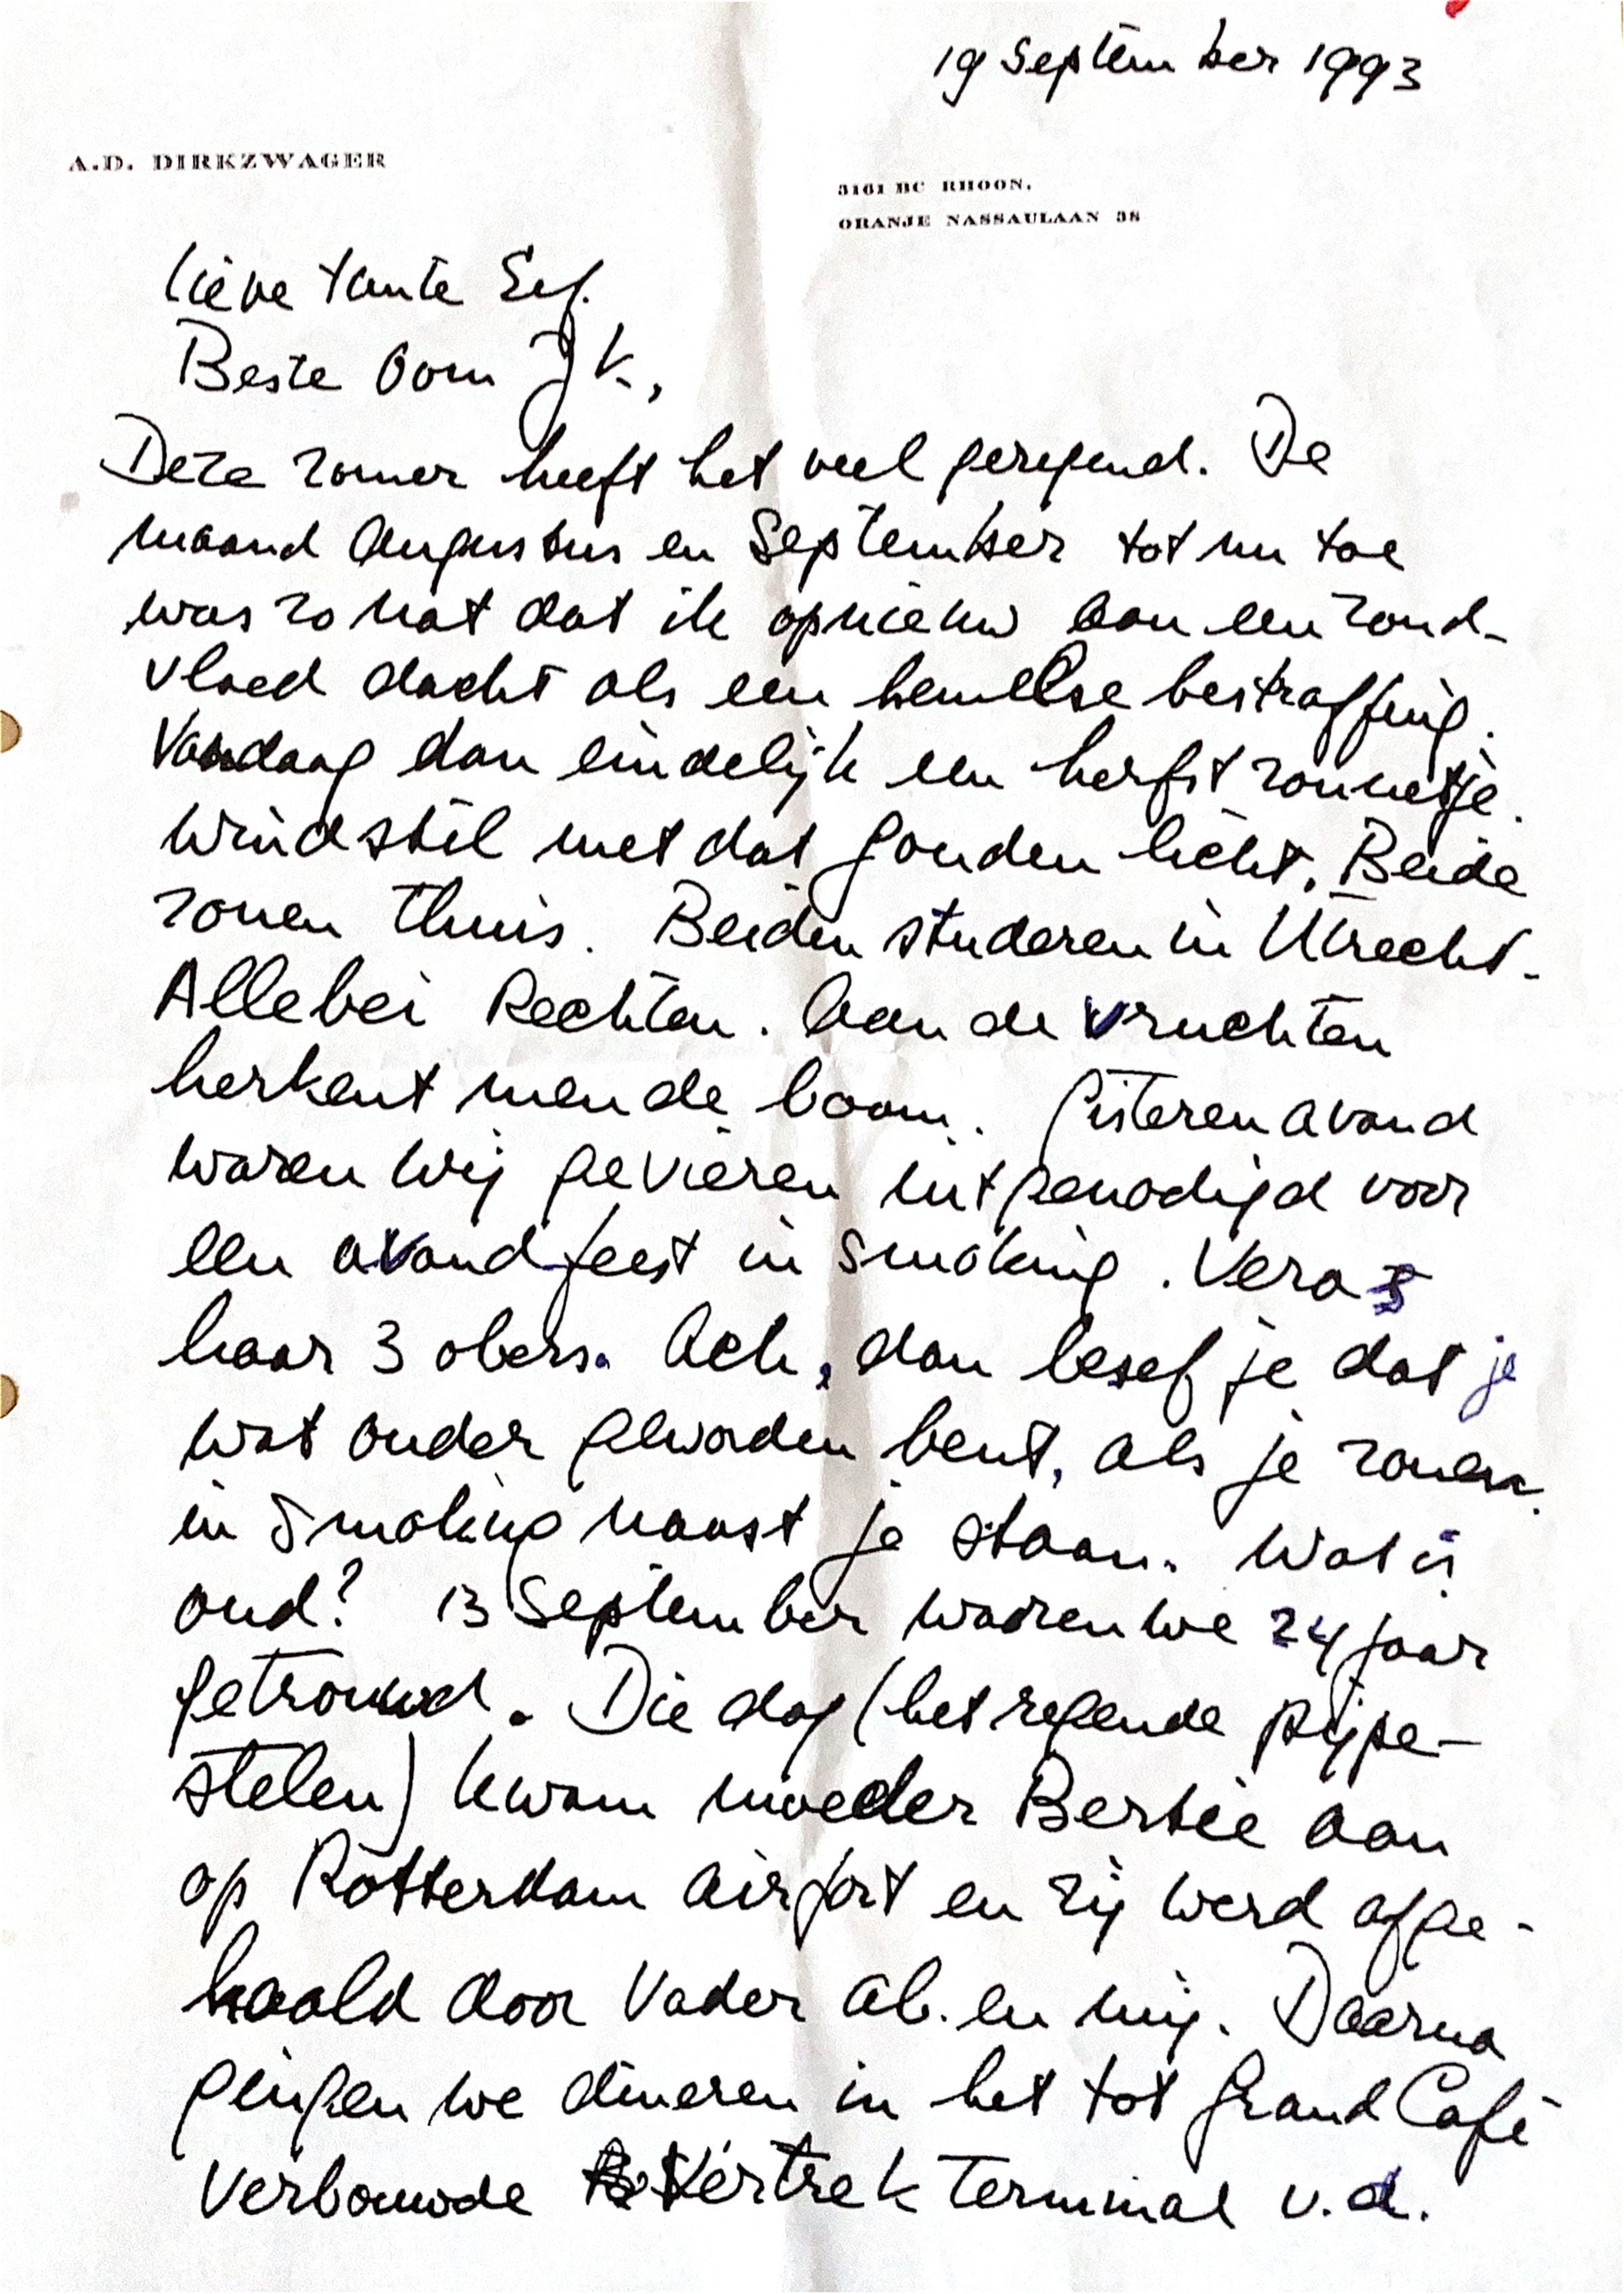 19 September 1993
A.D. DIRKZWAGER
3161 BC RHOON,
ORANJE NASSAULAAN 38
lieve tante
Beste Oom J K.,
Deze zomer heeft het veel geregend. De
maand Augustus en September tot nu toe
was zo nat dat ik opnieuw aan een zond-
vloed dacht als een hemelse bestraffing.
Vandaag dan eindelijk een herfst zonnetje.
Windstil met dat gouden licht. Beide
zonen thuis. Beiden studeren in Utrecht.
Allebei Rechten. Aan de vruchten
herkent men de boom. Gisteren avond
waren wij gevieren uitgenodigd voor
een avondfeest in smoking. Vera &
haar 3 obers. Ach, dan besef je dat je
wat ouder geworden bent, als je zonen
in smoking naast je staan. Wat is
oud? 13 September waren we 24 jaar
getrouwd. Die dag (het regende pijpe-
stelen) kwam moeder Bertie aan
op Rotterdam Airport en zij werd afge-
haald door Vader Ab. en mij. Daarna
gingen we dineren in het tot Grand Café
verbouwde Vertrek Terminal v.d.